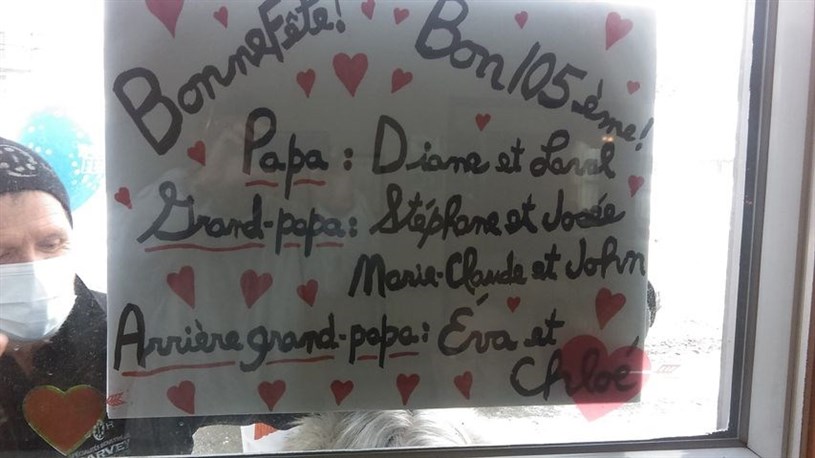 Bonne Fête!
Bon 105ème!
Papa: Diane et Laval
Grand-papa: Stéphane et Josée
Marie-Claude et John
Arrière grand-papa: Éva et
Chloé
HARVEY